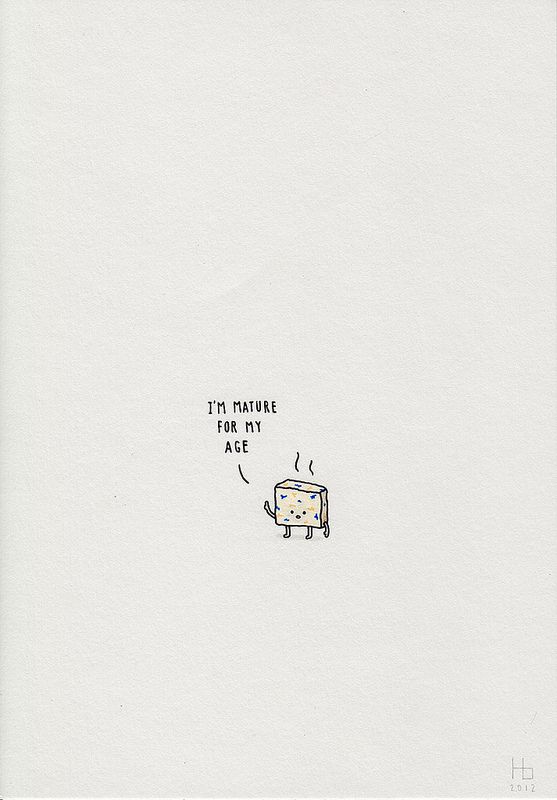 I'M MATURE
FOR MY
AGE
Hb
2012